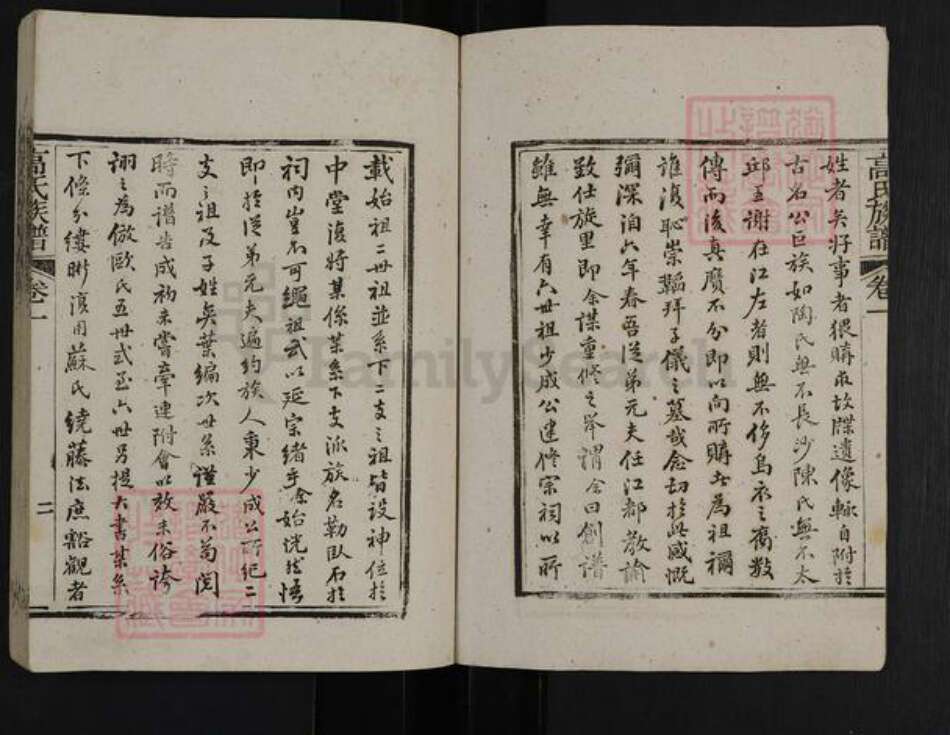 高氏族譜 卷一
姓者矣好事者猥購取故牒遺像輒自附於
古名公巨族如陶氏無不長沙陳氏無不太
邱王謝在江左者則無不侈烏衣之裔数
傳而後真贋不分即以向所購者為祖禰
誰復恥崇韜拜子儀之墓哉念切於此感慨
彌深洎六年春吾從弟元夫任江都教諭
致仕族里即余謀重修之舉謂余曰創譜
雖無幸有六世祖少成公建修宗祠以所
載始祖二世祖並系下二支之祖皆設神位於
中堂復將某係某系下支派族名勒臥石於
祠内豈不可繩祖武以延宗緒乎余始恍然悟
即於從弟元夫遍約族人秉少成公所纪二
支之祖及子姓奕葉編次世系謹嚴不苟閲
時而譜告成初未嘗牽連附會以效末俗誇
詡之為倣歐氏五世式至六世另提大書某系
下條分縷晰復用蘇氏繞藤法庶豁觀者
高氏族譜 卷一 二
FamilySearch